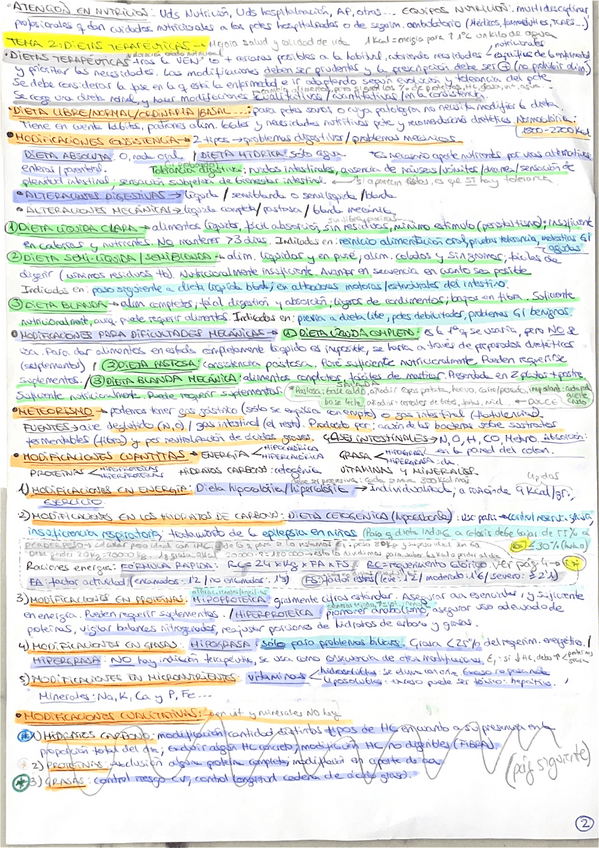 • ATENCIÓN EN NUTRICIÓN: Uds Nutrición, Uds hospitalización, AP, otros... EQUIPOS NUTRICIÓN: multidisciplinar
profesionales q dan cuidados nutricionales a los ptes hospitalizados o de seguim. ambulatorio (Médicos, farmacéuticos, TCAES...)
TEMA 2: DIETAS TERAPÉUTICAS → Mejora salud y calidad de vida 1 Kcal = energía para ↑ 1ºC un kilo de agua
• DIETAS TERAPÉUTICAS
y priorizar las necesidades. Las modificaciones deben ser prudentes y la prescripción debe ser (+) (no prohibir alim)
Se debe considerar la fase en la q está la enfermedad e ir adaptando según evolución y tolerancia del pcte
Se coge una dieta normal, y hacer modificaciones cualitativas / cuantitativas / en la consistencia.
• DIETA LIBRE/NORMAL/ORDINARIA/BASAL...: para ptes sanos o cuya patología no necesita modificar la dieta
Tiene en cuenta hábitos, patrones alim. locales y necesidades nutritivas pcte y recomendaciones dietéticas Normocalórica: 1800-2200 Kcal
• MODIFICACIONES CONSISTENCIA → 2 tipos → problemas digestivos / problemas mecánicos
DIETA ABSOLUTA: 0, nada oral / DIETA HÍDRICA: sólo agua
Tolerancia digestiva: ruidos intestinales, ausencia de náuseas/vómitos/diarrea/sensación de
plenitud intestinal, sensación subjetiva de bienestar intestinal.
• ALTERACIONES DIGESTIVAS → líquida / semiblanda o semilíquida / blanda
• ALTERACIONES MECÁNICAS → líquida completa / pastosa / blanda mecánica
① DIETA LÍQUIDA CLARA → alimentos líquidos, fácil absorción, sin residuos, mínimo estímulo (peristaltismo); insuficiente
en calorías y nutrientes. No mantener >3 días. Indicados en: reinicio alimentación oral, prueba tolerancia, molestias GI agudas
② DIETA SEMI-LÍQUIDA / SEMIBLANDA → alim. líquidos y en puré, alim. colados y sin grumos, fáciles de
digerir (mínimos residuos tb). Nutricionalmente insuficiente. Avanzar en secuencia en cuanto sea posible
Indicados en: paso siguiente a dieta líquida blanda, en alteraciones motoras/estructurales del intestino.
③ DIETA BLANDA → alim completos, fácil digestión y absorción, ligeros de condimentos, bajos en fibra. Suficiente
nutricionalment, aunq puede requerir alimentos. Indicados en: previa a dieta libre, ptes debilitados, problemas GI benignos.
• MODIFICACIONES PARA DIFICULTADES MECÁNICAS → ① DIETA LÍQUIDA COMPLETA: es la 1ª q se usaría, pero NO se
usa. Para dar alimentos en estado completamente líquido es imposible, se haría a través de preparados dietéticos
(suplementos) / ② DIETA PASTOSA: consistencia pastosa. Puré suficiente nutricionalmente. Pueden requerirse
suplementos. / ③ DIETA BLANDA MECÁNICA: alimentos completos fáciles de masticar. Presentado en 2 platos + postre.
Suficiente nutricionalmente. Puede requerir suplementos
• METEORISMO → podemos tener gas gástrico (sólo se expulsa con eructo) o gas intestinal (flatulencia).
FUENTES → aire deglutido (N, O) / gas intestinal (el resto). Producido por: acción de las bacterias sobre sustratos
fermentables (fibra) y por neutralización de ácidos grasos. GASES INTESTINALES → N, O, H, CO, Metano
• MODIFICACIONES CUANTITAS → ENERGÍA < HIPOCALÓRICA HIPERCALÓRICA GRASA < HIPOGRASA HIPERGRASA
PROTEÍNAS < HIPOPROTEICA HIPERPROTEICA HIDRATOS CARBONO: cetogénica VITAMINAS Y MINERALES.
1) MODIFICACIONES EN ENERGÍA: Dieta hipocalórica / hipercalórica → Individualizada, a menos de 9 Kcal/gr,
EJERCICIO
2) MODIFICACIONES EN LOS HIDRATOS DE CARBONO: DIETA CETOGÉNICA
insuficiencia respiratoria, tratamiento de la epilepsia en niños
Raciones energía: FÓRMULA RÁPIDA: RC = 24 x Kg x FA x FS RC = requerimiento calórico. Ver pág 4
FA: factor actividad (encamados: 1'2 / no encamados: 1'3) FS: factor estrés (leve: 1'2 / moderado 1'6 / severo: ≥ 2'1)
3) MODIFICACIONES EN PROTEÍNAS: HIPOPROTEICA: Asegurar aas esenciales y suficiente
en energía. Pueden requerir suplementos. / HIPERPROTEICA: promover anabolismo, asegurar uso adecuado de
proteínas, vigilar balances nitrogenados, reajustar posiciones de hidratos de carbono y grasas.
4) MODIFICACIONES EN GRASAS: HIPOGRASA: sólo para problemas biliares. Grasa < 25% del requerim. energético. /
HIPERGRASA: NO hay indicación terapéutica, se usa como consecuencia de otras modificaciones.
5) MODIFICACIONES EN MICRONUTRIENTES: vitaminas < hidrosolubles liposolubles → exceso puede ser tóxico: hepático.
Minerales: Na, K, Ca y P, Fe...
• MODIFICACIONES CUALITATIVAS: en vit y minerales NO hay
1) HIDRATOS CARBONO: modificación cantidad distintos tipos de HC en cuanto a su presencia en la
proporción total del dia; exclusión algún HC concreto; modificación HC no digeribles (FIBRA)
2) PROTEÍNAS: exclusión alguna proteína completa; modificación en aporte de aas
3) GRASAS: control riesgo CV, control longitud cadena de ácido graso.
(pág siguiente)
2